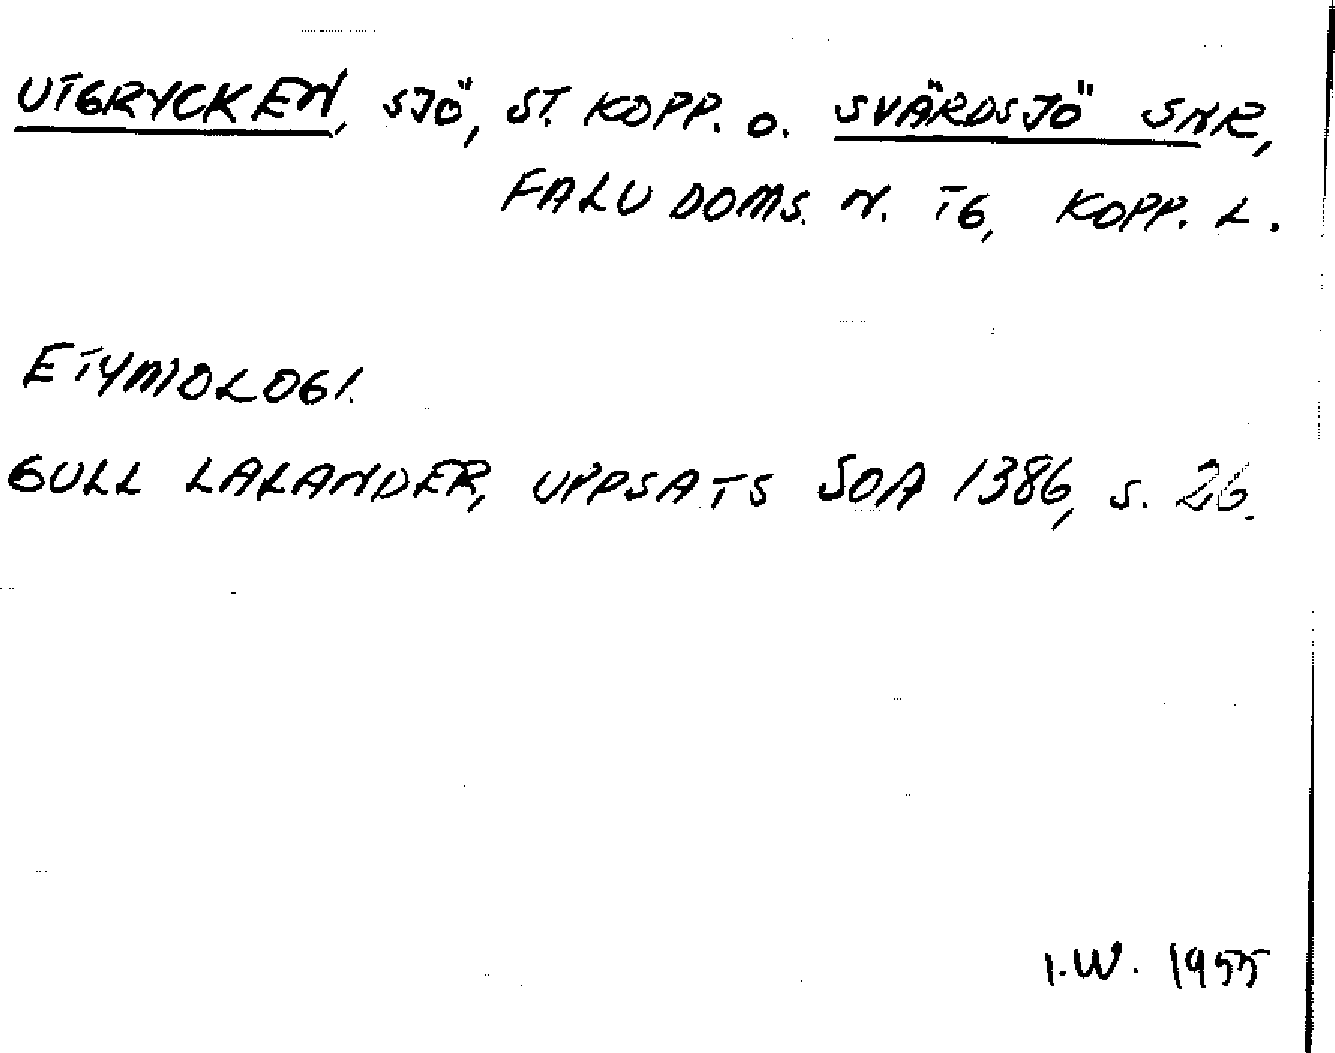 UTGRYCKEN, SJÖ, ST. KOPP. O. SVÄRDSJÖ SNR,
FALU DOMS. N. TG, KOPP. L.
ETYMOLOGI.
GULL LALANDER, UPPSATS SOA 1386, S. 26.
I.W. 1955